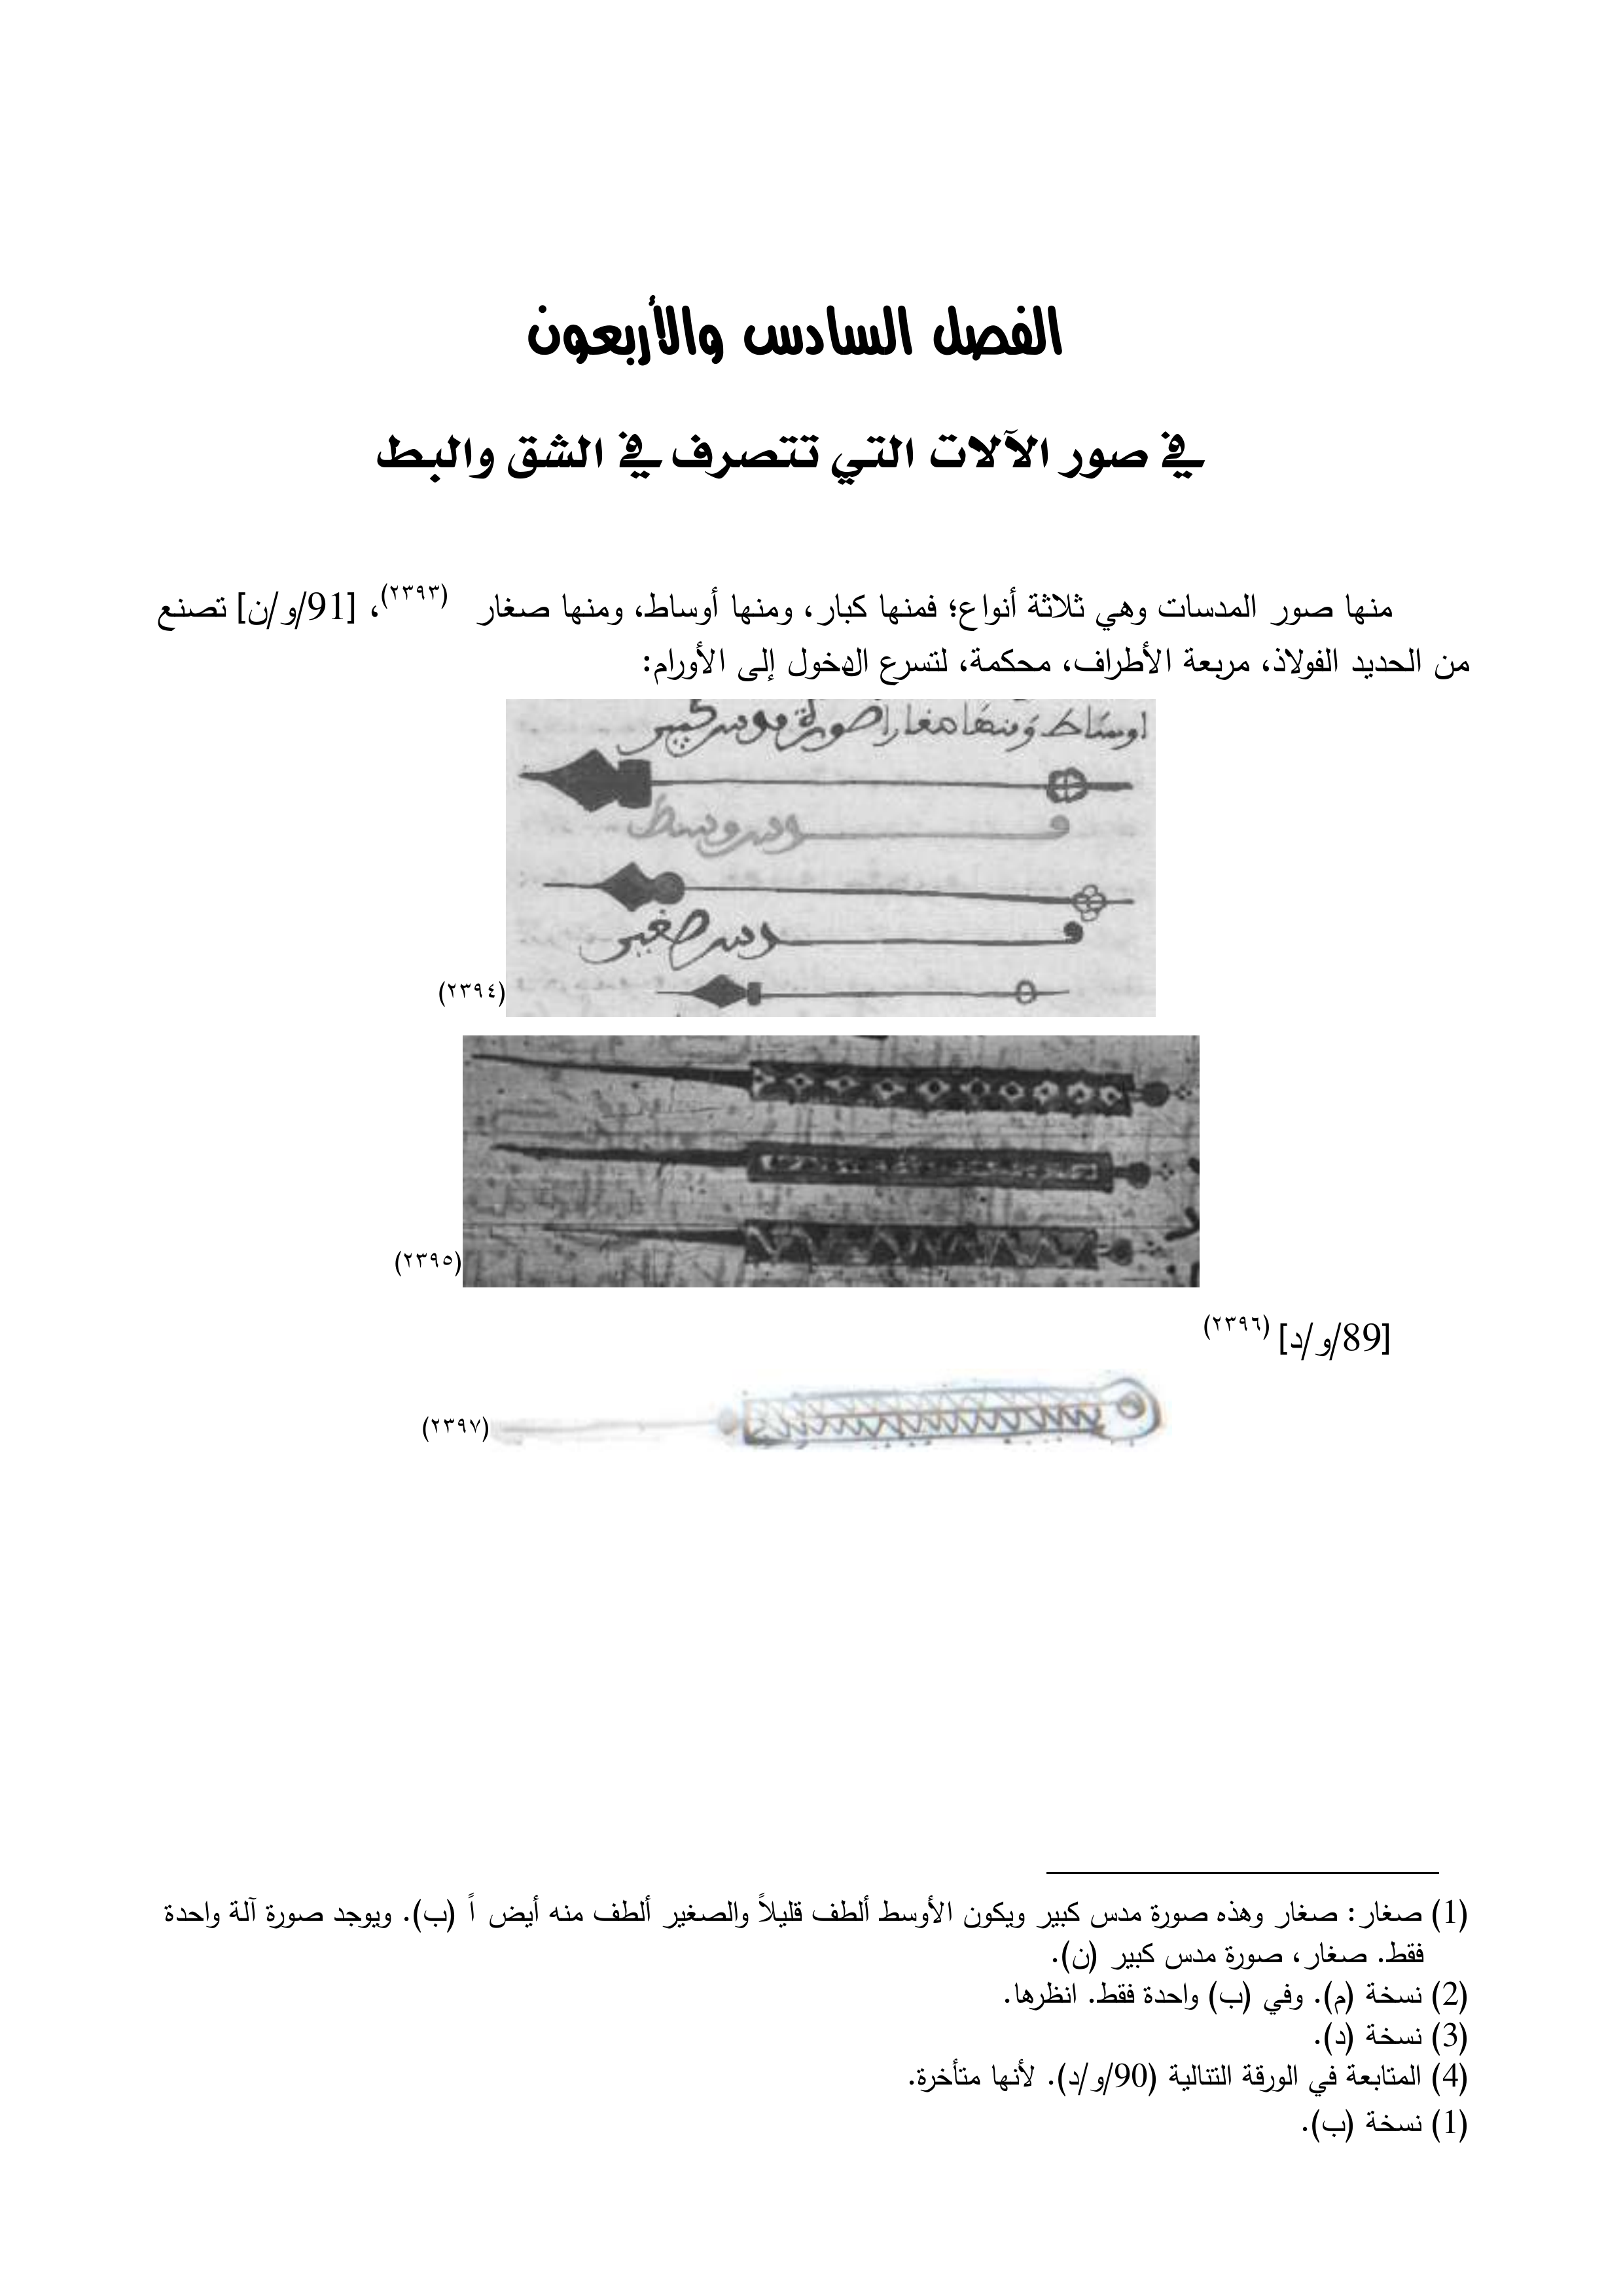 الفصل السادس والأربعون
في صور الآلات التي تتصرف في الشق والبط
منها صور المدسات وهي ثلاثة أنواع؛ فمنها كبار، ومنها أوساط، ومنها صغار (٢٣٩٣)، [91/و/ن] تصنع
من الحديد الفولاذ، مربعة الأطراف، محكمة، لتسرع الدخول إلى الأورام:
اوساط ومنها صغار صورة مدس كبير
مدس وسط
مدس صغير
(٢٣٩٤)
(٢٣٩٥)
[89/و/د] (٢٣٩٦)
(٢٣٩٧)
(1) صغار: صغار وهذه صورة مدس كبير ويكون الأوسط ألطف قليلاً والصغير ألطف منه أيض اً (ب). ويوجد صورة آلة واحدة
فقط. صغار، صورة مدس كبير (ن).
(2) نسخة (م). وفي (ب) واحدة فقط. انظرها.
(3) نسخة (د).
(4) المتابعة في الورقة التتالية (90/و/د). لأنها متأخرة.
(1) نسخة (ب).